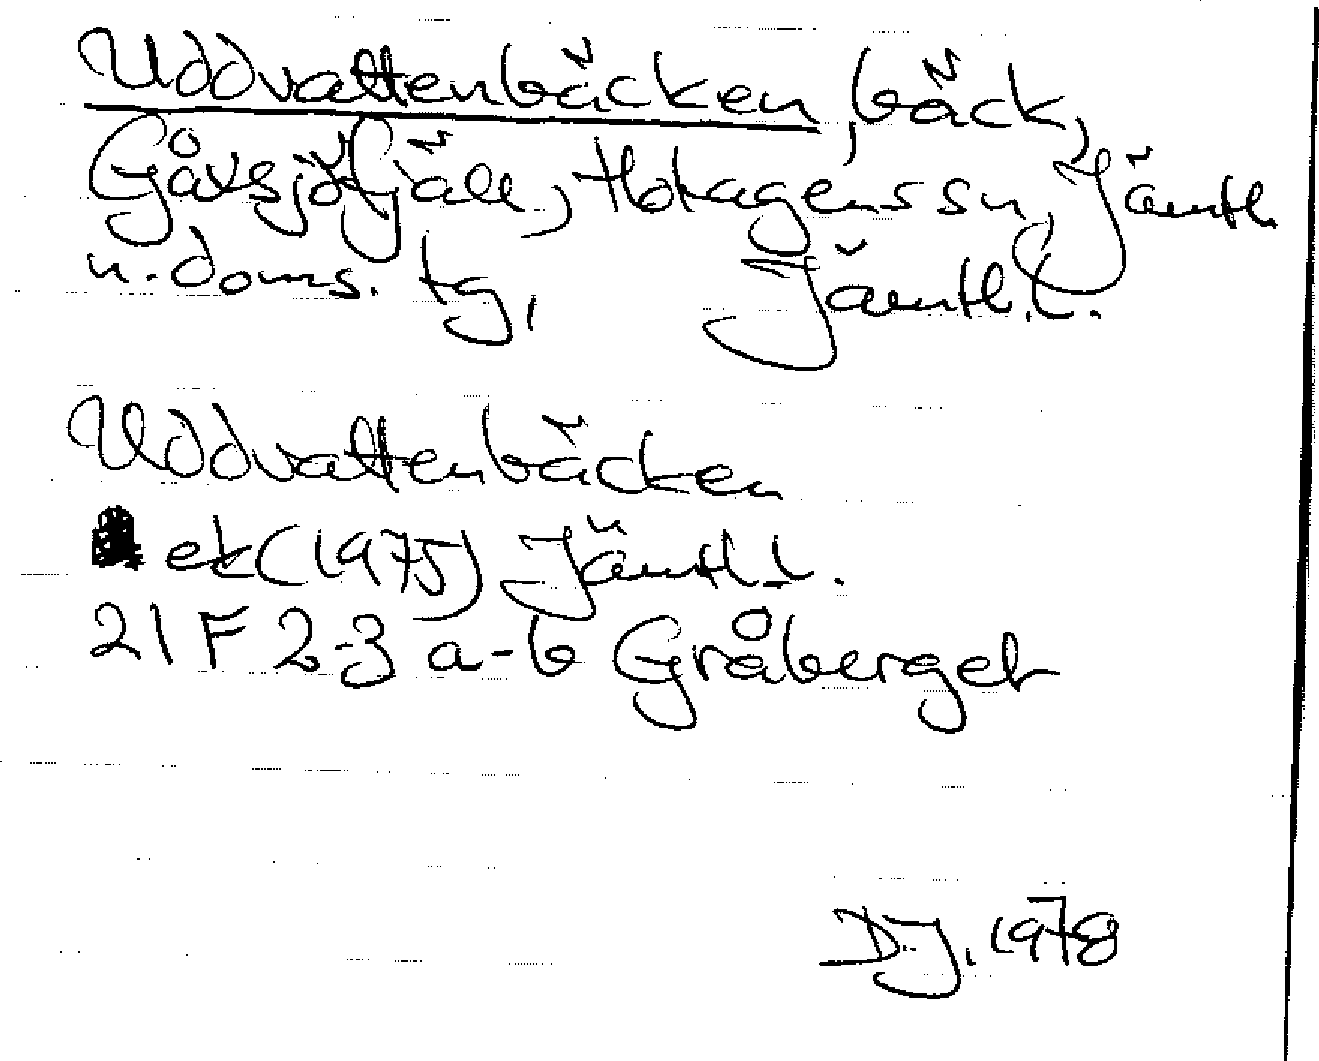 Uddvattenbäcken, bäck,
Gåxsjöfjäll, Hotagens sn, Jämtl.
n. doms. tg, Jämtl. l.
Uddvattenbäcken
ek (1975) Jämtl. l.
21 F 2-3 a-b Gråberget
D.J. 1978